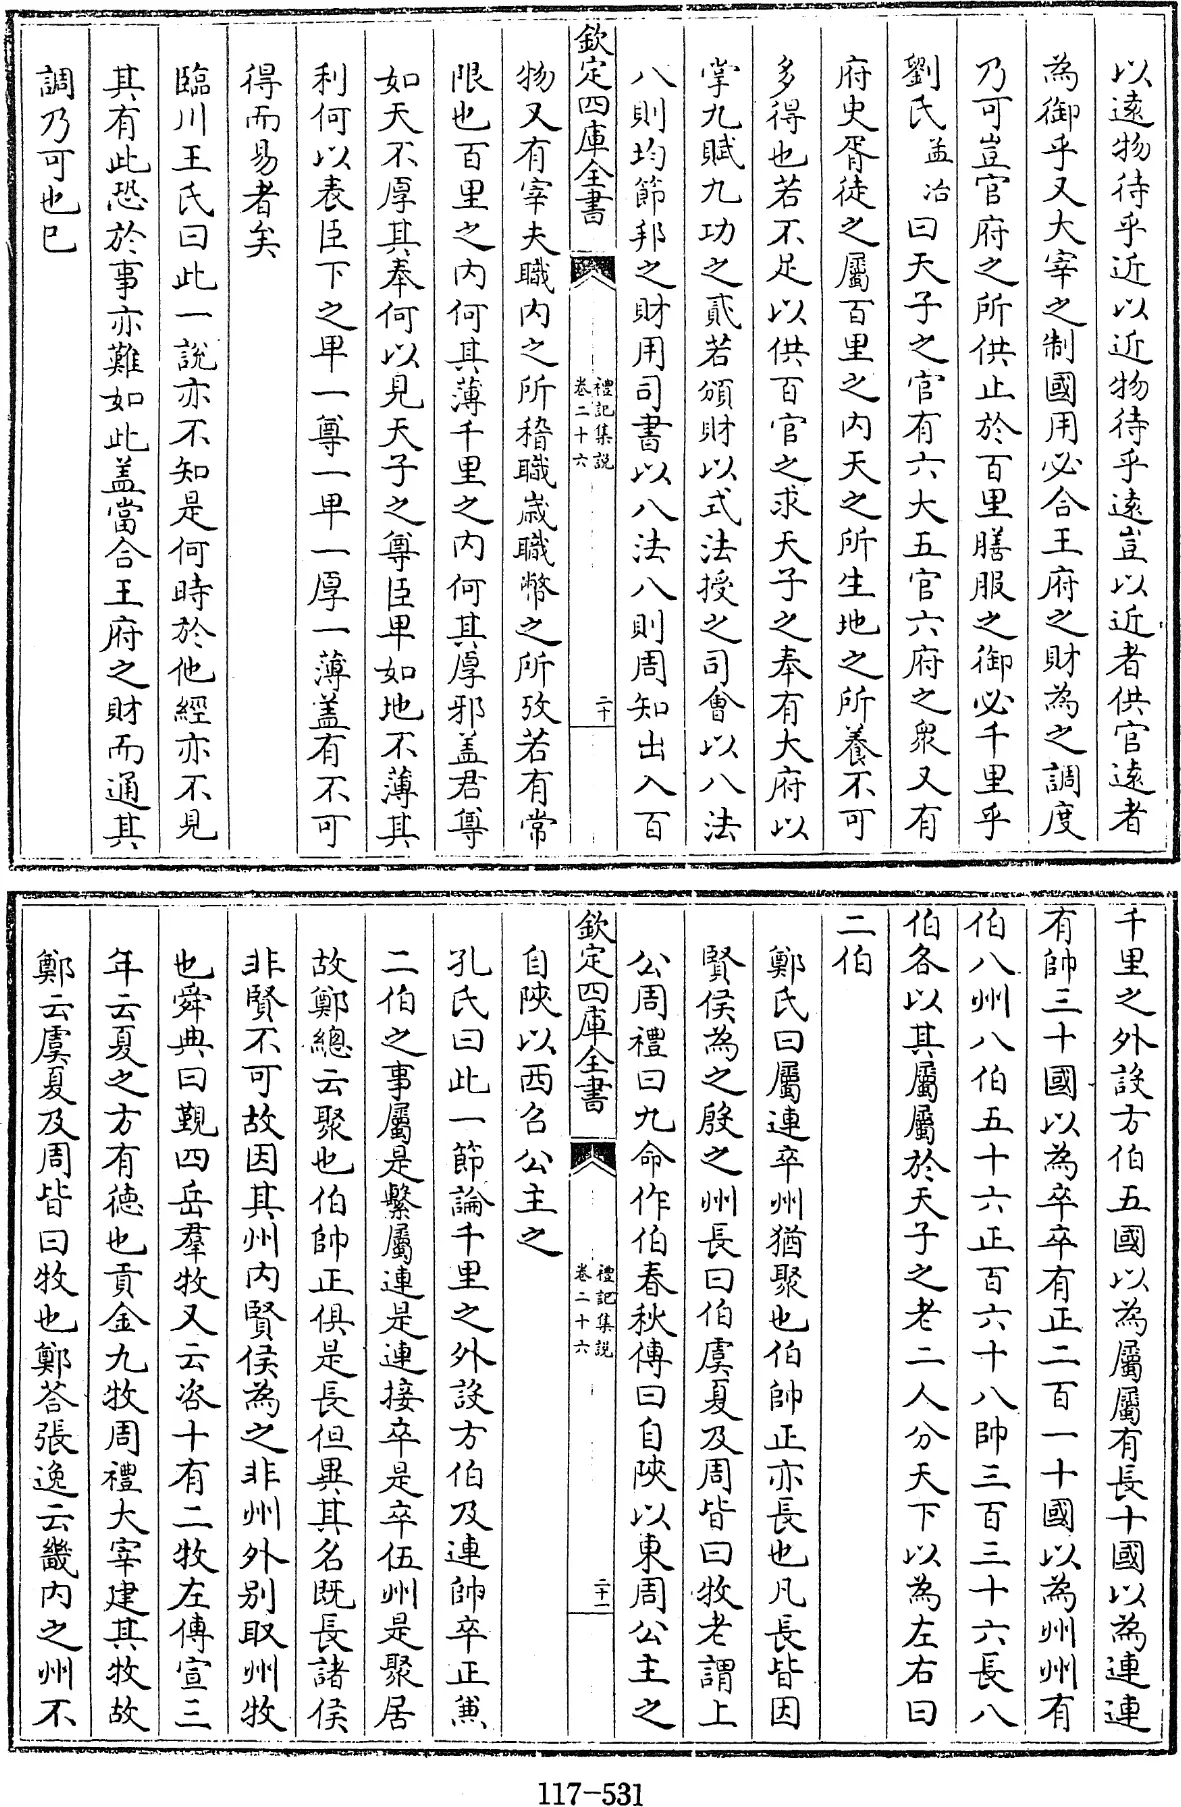 以遠物待乎近以近物待乎遠豈以近者供官遠者
為御乎又大宰之制國用必合王府之財為之調度
乃可豈官府之所供止於百里膳服之御必千里乎
劉氏孟冶曰天子之官有六大五官六府之衆又有
府史胥徒之屬百里之内天之所生地之所養不可
多得也若不足以供百官之求天子之奉有大府以
掌九賦九功之貳若頒財以式法授之司㑹以八法
八則均節邦之財用司書以八法八則周知出入百
欽定四庫全書
禮記集說
卷二十六
二十
物又有宰夫職内之所稽職歳職幣之所攷若有常
限也百里之内何其薄千里之内何其厚邪盖君尊
如天不厚其奉何以見天子之尊臣卑如地不薄其
利何以表臣下之卑一尊一卑一厚一薄盖有不可
得而易者矣
臨川王氏曰此一說亦不知是何時於他經亦不見
其有此恐於事亦難如此盖當合王府之財而通其
調乃可也已
千里之外設方伯五國以為屬屬有長十國以為連連
有帥三十國以為卒卒有正二百一十國以為州州有
伯八州八伯五十六正百六十八帥三百三十六長八
伯各以其屬屬於天子之老二人分天下以為左右曰
二伯
鄭氏曰屬連卒州猶聚也伯帥正亦長也凡長皆因
賢侯為之殷之州長曰伯虞夏及周皆曰牧老謂上
公周禮曰九命作伯春秋傳曰自陜以東周公主之
欽定四庫全書
禮記集說
卷二十六
二十一
自陜以西召公主之
孔氏曰此一節論千里之外設方伯及連帥卒正兼
二伯之事屬是繫屬連是連接卒是卒伍州是聚居
故鄭總云聚也伯帥正俱是長但異其名既長諸侯
非賢不可故因其州内賢侯為之非州外别取州牧
也舜典曰覲四岳羣牧又云咨十有二牧左傳宣三
年云夏之方有徳也貢金九牧周禮大宰建其牧故
鄭云虞夏及周皆曰牧也鄭荅張逸云畿内之州不
117-531